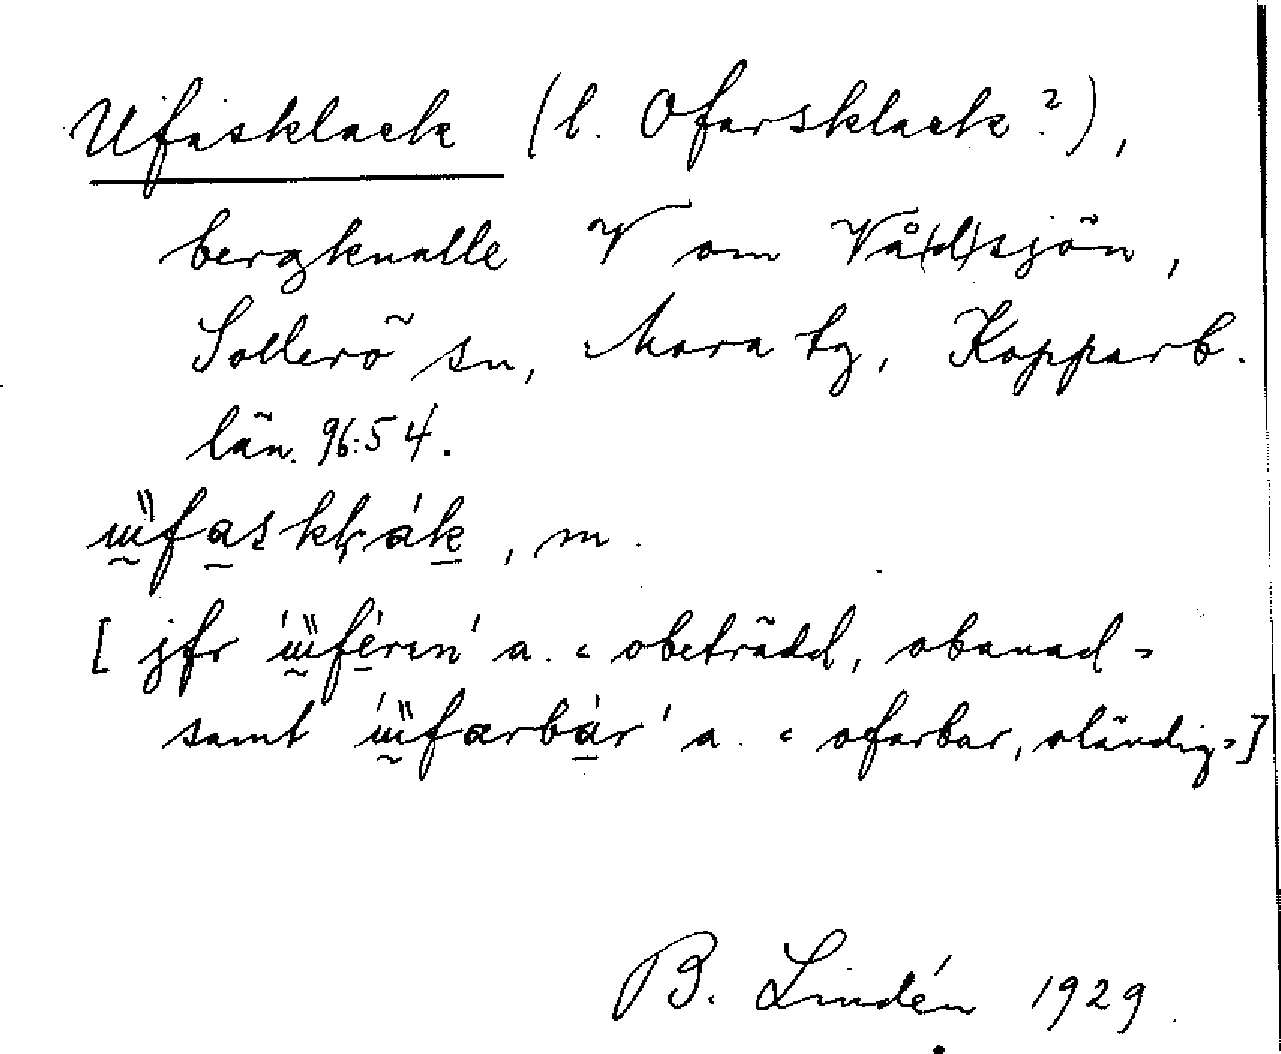 Ufasklack (l. Ofarsklack?),
bergknalle V om Vå(d)sjön,
Sollerö sn, Mora tg, Kopparb.
län. 96:54.
, m.
[jfr a. = obeträdd, obanad =
samt a. = ofarbar, oländig =]
B. Lindén 1929.